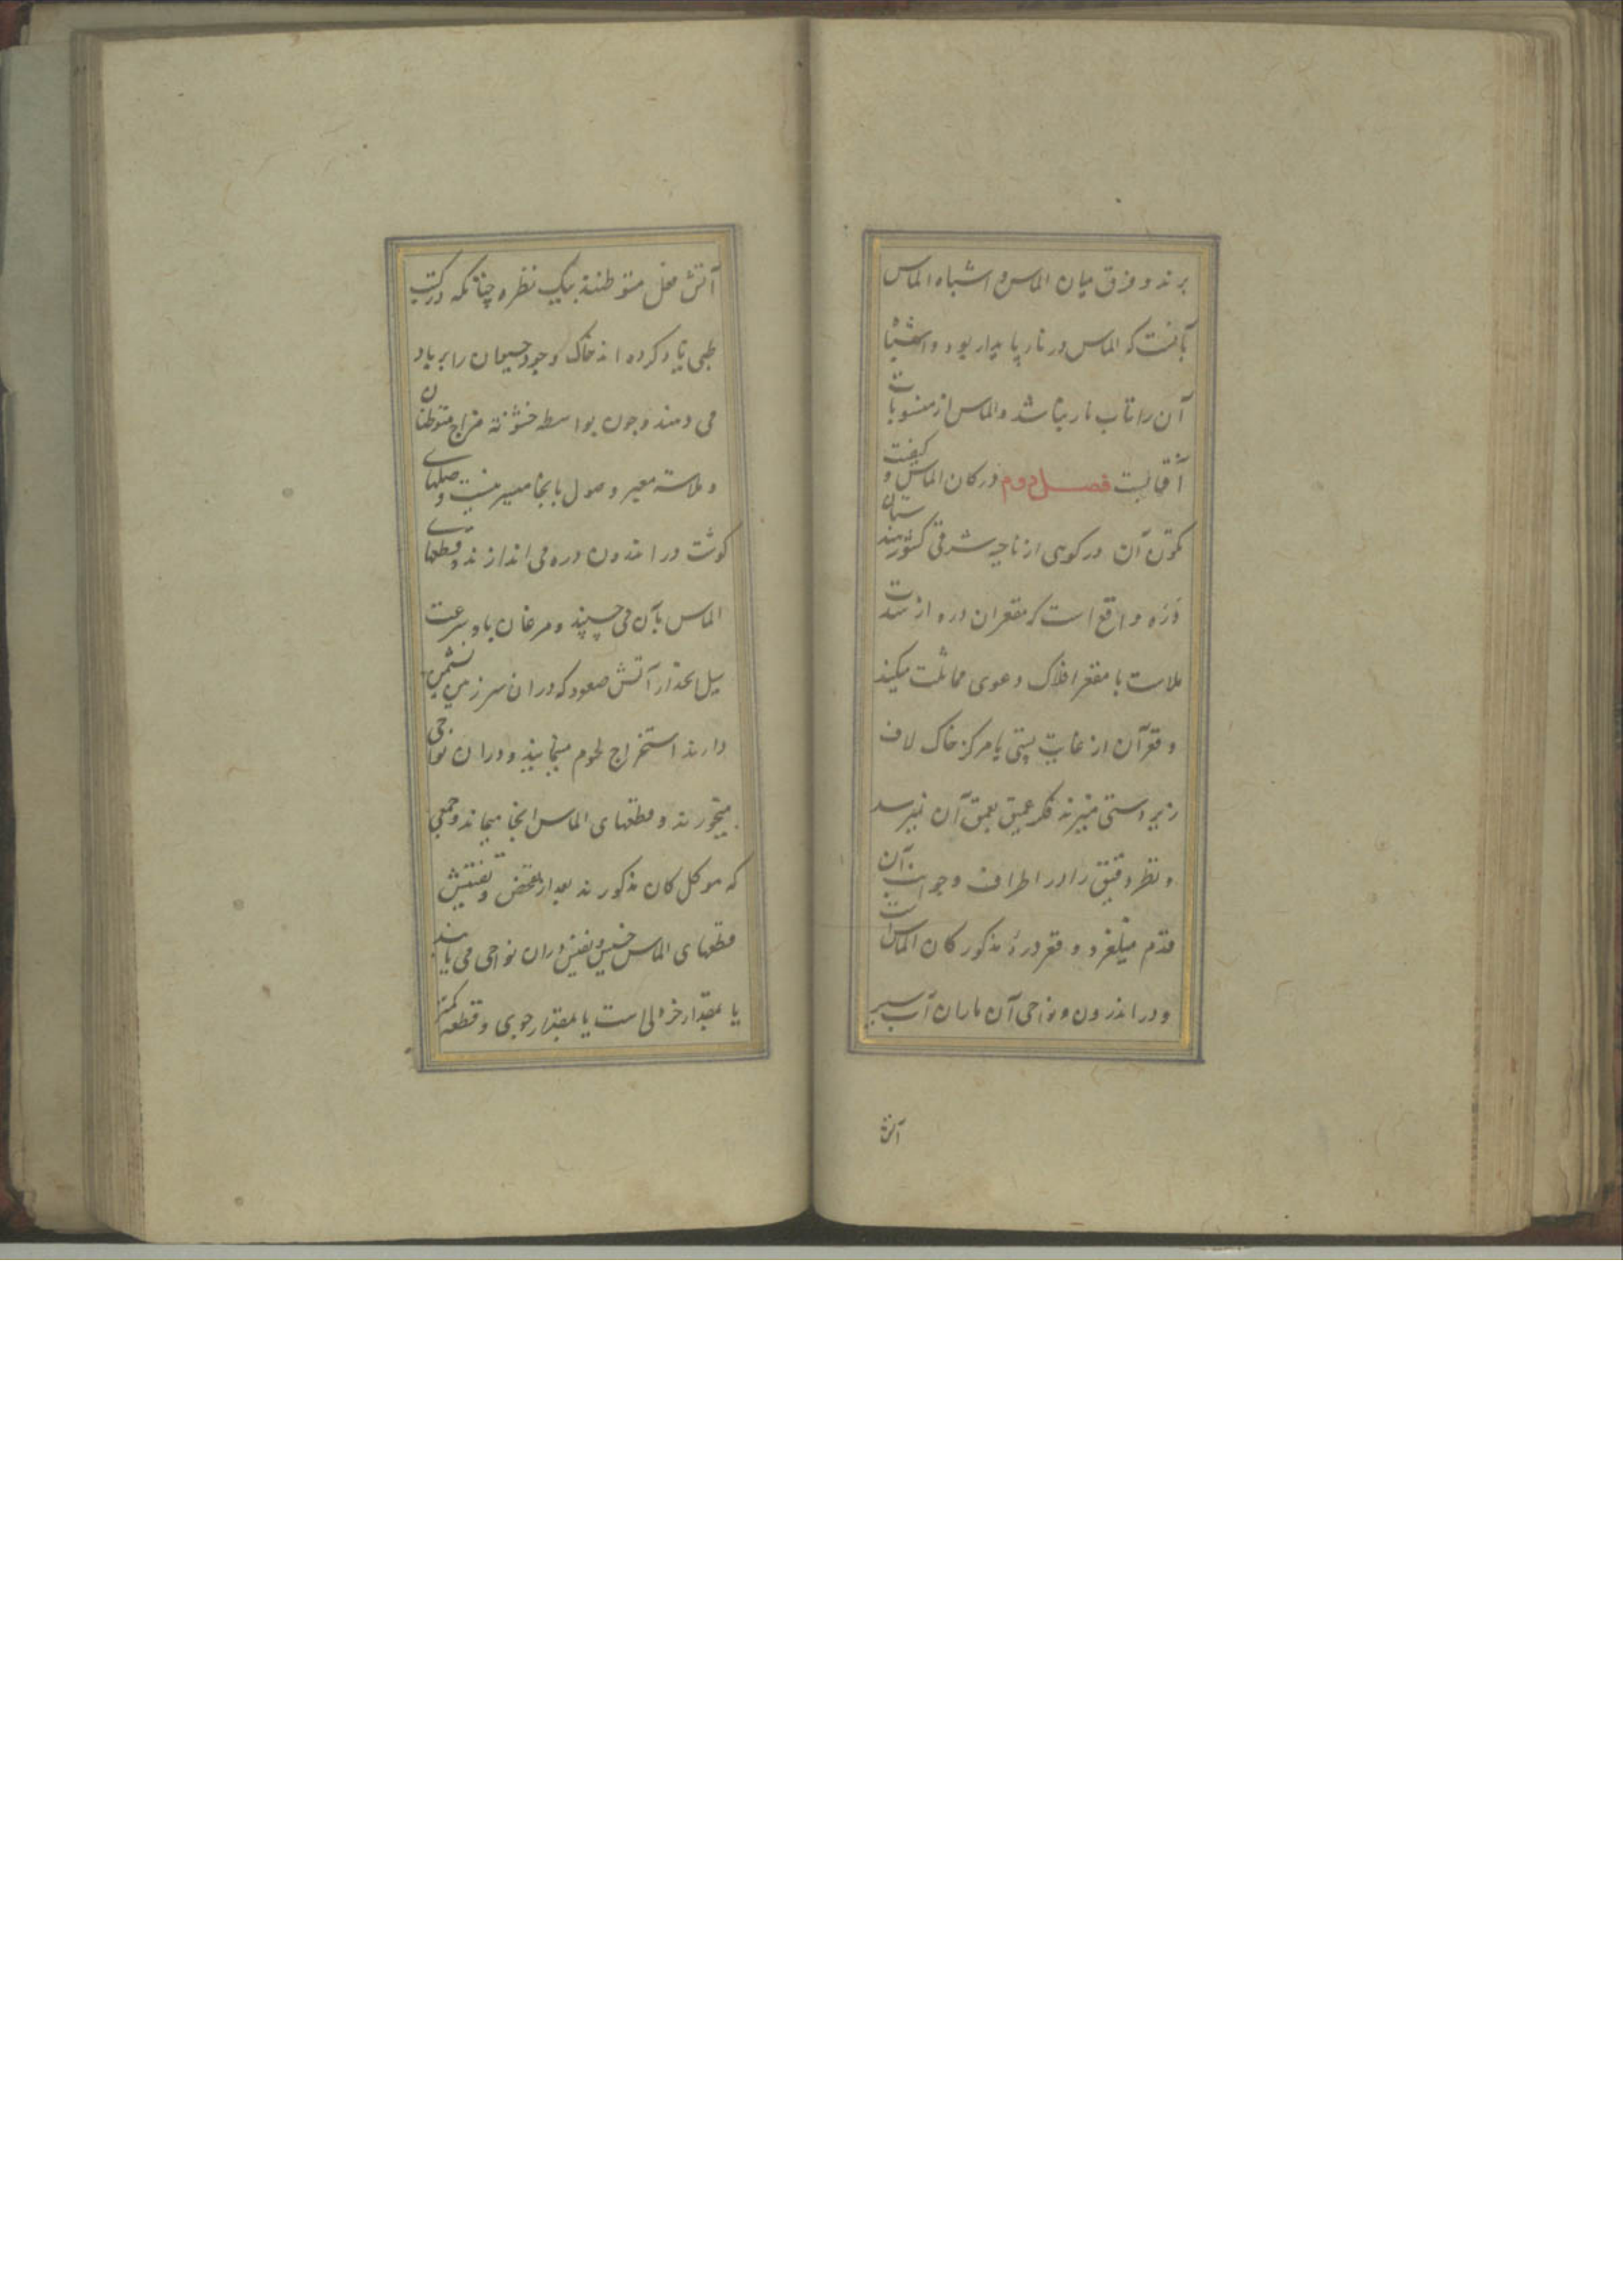 برند و فرق میان الماس و اشباه الماس
بآنست که الماس در نار پایدار بود و اشباه
آن را تاب نار نباشد و الماس از منسوبات
آفتابست فصل دوم در کان الماس و کیفیت
تکون آن در کوهی از ناحیه شرقی کشور هندستان
دره واقع است که مقعر ان دره از شدت
ملاست با مقعر افلاک دعوی مماثلت میکند
و قعر آن از غایت پستی با مرکز خاک لاف
زیردستی میزند فکر عمیق بعمق آن نمیرسد
و نظر دقیق را در اطراف و جوانب آن
قدم میلغزد و قعر درهٔ مذکور کان الماس است
و در اندرون و نواحی آن ماران آب سیر
آتش
آتش فعل متوطنند بیک نظره چنانکه در کتب
طبی یاد کرده اند خاک وجود حیوان را بر باد
می دهند و چون بواسطه خشونة مزاج متوطنان
و ملاسة معبر وصول بانجا میسر نیست وصلهای
کوشت در اندرون دره می اندازند و قطعهای
الماس بآن می چسپند و مرغان باد سرعت
سیل انحدار آتش صعود که در ان سرزمین نشیمن
دارند استخراج لحوم مینمایند و در ان نواحی
میخورند و قطعهای الماس انجا میماند و جمعی
که موکل کان مذکورند بعد از تفحص و تفتیش
قطعهای الماس خسیس و نفیس در ان نواحی می یابند
یا بمقدار خردلی است یا بمقدار جوی و قطعه